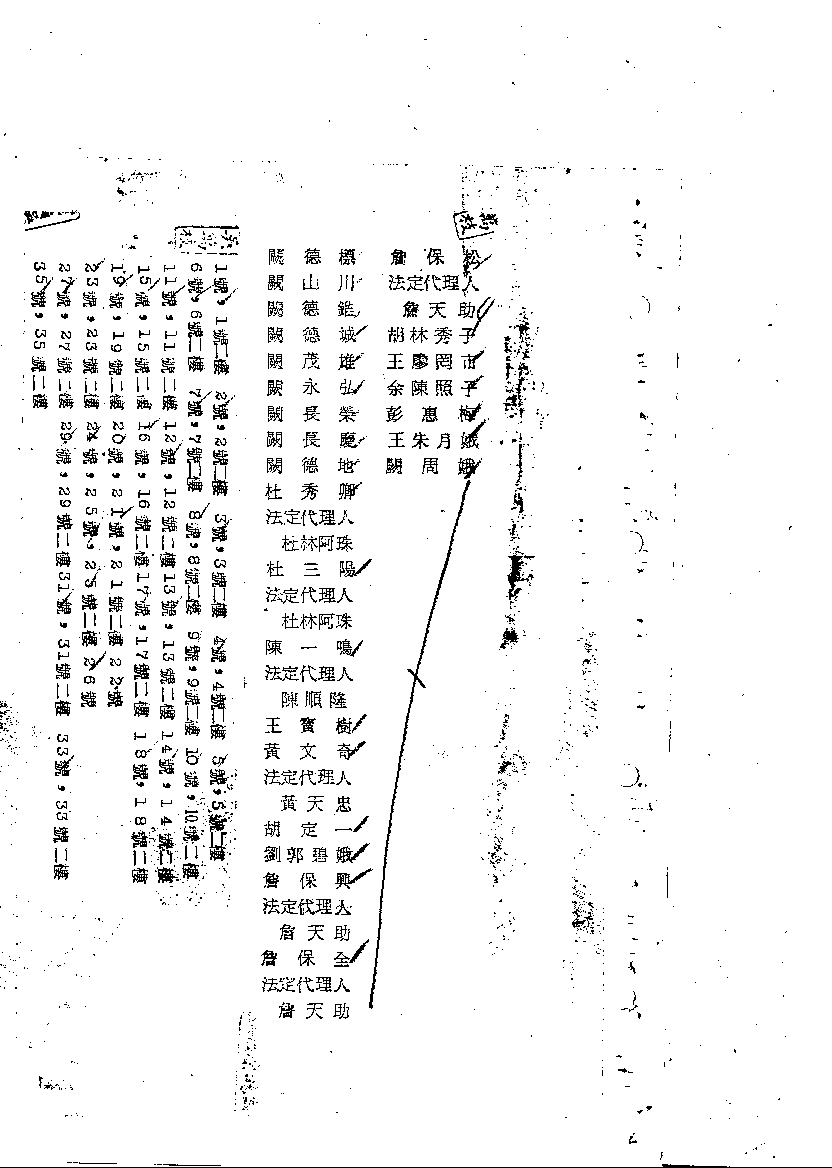 闕德標
闕山川
闕德鎡
闕德誠
闕茂雄
闕永弘
闕長榮
闕長慶
闕德地
杜秀卿
法定代理人
杜林阿珠
杜三陽
法定代理人
杜林阿珠
陳一鳴
法定代理人
陳順隆
王寶樹
黃文奇
法定代理人
黃天忠
胡定一
劉郭碧娥
詹保興
法定代理人
詹天助
詹保全
法定代理人
詹天助
詹保松
法定代理人
詹天助
胡林秀子
王廖罔市
余陳照子
彭惠梅
王朱月娥
闕周娥
1號，1號二樓 2號，2號二樓 3號，3號二樓 4號，4號二樓 5號，5號二樓
6號，6號二樓 7號，7號二樓 8號，8號二樓 9號，9號二樓 10號，10號二樓
11號，11號二樓 12號，12號二樓 13號，13號二樓 14號，14號二樓
15號，15號二樓 16號，16號二樓 17號，17號二樓 18號，18號二樓
19號，19號二樓 20號，21號，21號二樓 22號
23號，23號二樓 24號，25號，25號二樓 26號
27號，27號二樓 29號，29號二樓 31號，31號二樓 33號，33號二樓
35號，35號二樓